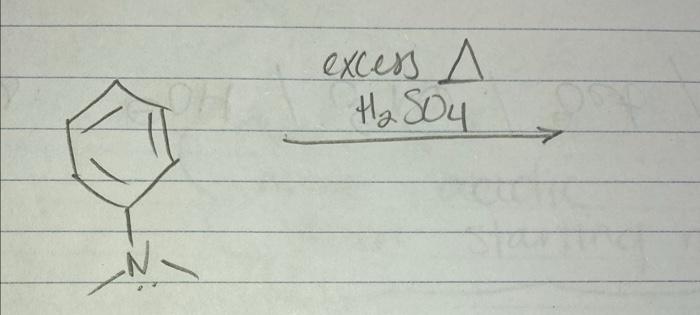 excess Δ
H₂SO₄
N